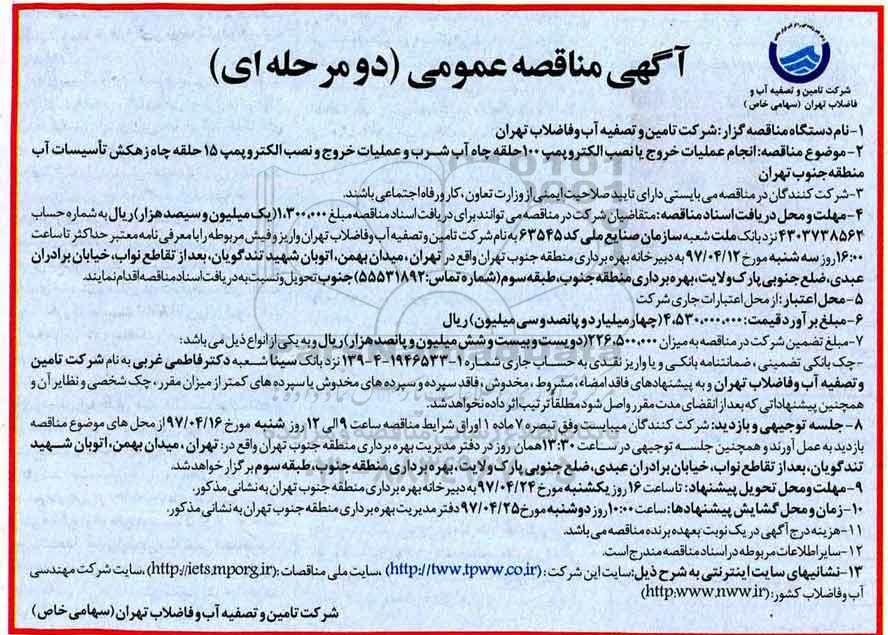 آگهی مناقصه عمومی (دو مرحله ای)
شرکت تامین و تصفیه آب و
فاضلاب تهران (سهامی خاص)
۱-نام دستگاه مناقصه گزار: شرکت تامین و تصفیه آب و فاضلاب تهران
۲-موضوع مناقصه: انجام عملیات خروج یا نصب الکتروپمپ ۱۰۰ حلقه چاه آب شرب و عملیات خروج و نصب الکتروپمپ ۱۵ حلقه چاه زهکش تأسیسات آب
منطقه جنوب تهران
۳-شرکت کنندگان در مناقصه می بایستی دارای تایید صلاحیت ایمنی از وزارت تعاون ، کار و رفاه اجتماعی باشند.
۴- مهلت و محل دریافت اسناد مناقصه: متقاضیان شرکت در مناقصه می توانند برای دریافت اسناد مناقصه مبلغ ۱,۳۰۰,۰۰۰ (یک میلیون و سیصد هزار) ریال به شماره حساب
۴۳۰۳۷۳۸۵۶۲ نزد بانک ملت شعبه سازمان صنایع ملی کد ۶۳۵۴۵ به نام شرکت تامین و تصفیه آب و فاضلاب تهران واریز و فیش مربوطه را با معرفی نامه معتبر حداکثر تا ساعت
۱۶:۰۰ روز سه شنبه مورخ ۹۷/۰۴/۱۲ به دبیرخانه بهره برداری منطقه جنوب تهران واقع در تهران ، میدان بهمن، اتوبان شهید تندگویان، بعد از تقاطع نواب، خیابان برادران
عبدی، ضلع جنوبی پارک ولایت، بهره برداری منطقه جنوب، طبقه سوم (شماره تماس: ۵۵۵۳۱۸۹۲) جنوب تحویل و نسبت به دریافت اسناد مناقصه اقدام نمایند.
۵- محل اعتبار: از محل اعتبارات جاری شرکت
۶- مبلغ برآورد قیمت: ۴,۵۳۰,۰۰۰,۰۰۰ (چهار میلیارد و پانصد و سی میلیون) ریال
۷- مبلغ تضمین شرکت در مناقصه به میزان ۲۲۶,۵۰۰,۰۰۰ (دویست و بیست و شش میلیون و پانصد هزار) ریال و به یکی از انواع ذیل می باشد:
-چک بانکی تضمینی ، ضمانتنامه بانکی و یا واریز نقدی به حساب جاری شماره ۱-۱۹۴۶۵۳۳-۴-۱۳۹ نزد بانک سینا شعبه دکتر فاطمی غربی به نام شرکت تامین
و تصفیه آب و فاضلاب تهران و به پیشنهادهای فاقد امضاء، مشروط ، مخدوش ، فاقد سپرده و سپرده های مخدوش یا سپرده های کمتر از میزان مقرر ، چک شخصی و نظایر آن و
همچنین پیشنهاداتی که بعد از انقضای مدت مقرر واصل شود مطلقاً ترتیب اثر داده نخواهد شد.
۸- جلسه توجیهی و بازدید: شرکت کنندگان میبایست وفق تبصره ۷ ماده ۱ اوراق شرایط مناقصه ساعت ۹ الی ۱۲ روز شنبه مورخ ۹۷/۰۴/۱۶ از محل های موضوع مناقصه
بازدید به عمل آورند و همچنین جلسه توجیهی در ساعت ۱۳:۳۰ همان روز در دفتر مدیریت بهره برداری منطقه جنوب تهران واقع در: تهران ، میدان بهمن، اتوبان شهید
تندگویان، بعد از تقاطع نواب، خیابان برادران عبدی، ضلع جنوبی پارک ولایت، بهره برداری منطقه جنوب، طبقه سوم برگزار خواهد شد.
۹- مهلت و محل تحویل پیشنهاد: تا ساعت ۱۶ روز یکشنبه مورخ ۹۷/۰۴/۲۴ به دبیرخانه بهره برداری منطقه جنوب تهران به نشانی مذکور.
۱۰- زمان و محل گشایش پیشنهادها: ساعت ۱۰:۰۰ روز دوشنبه مورخ ۹۷/۰۴/۲۵ دفتر مدیریت بهره برداری منطقه جنوب تهران به نشانی مذکور.
۱۱- هزینه درج آگهی در یک نوبت بعهده برنده مناقصه می باشد.
۱۲- سایر اطلاعات مربوطه در اسناد مناقصه مندرج است.
۱۳- نشانیهای سایت اینترنتی به شرح ذیل: سایت این شرکت : (http://tww.tpww.co.ir) ، سایت ملی مناقصات : (http://iets.mporg.ir)، سایت شرکت مهندسی
آب و فاضلاب کشور: (http:www.nww.ir)
شرکت تامین و تصفیه آب و فاضلاب تهران (سهامی خاص)